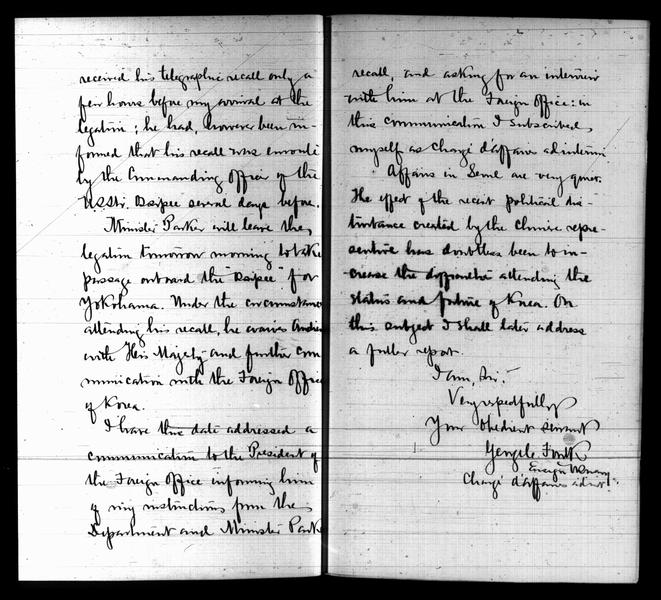 received his telegraphic recall only a
few hours before my arrival at the
legation; he had, however been in-
formed that his recall was enroute
by the Commanding Officer of the
U.S.Str. Ossipee several days before.
Minister Parker will leave the
legation tomorrow morning to take
passage onboard the "Ossipee" for
Yokohama. Under the circumstances
attending his recall, he waives Audience
with His Majesty and further com
munication with the Foreign Office
of Korea.
I have this date addressed a
communication to the President of
the Foreign Office informing him
of my instructions from the
Department and Minister Parker
recall, and asking for an interview
with him at the Foreign Office: in
this communication I subscribed
myself as Chargé d'affaires ad interim
Affairs in Seoul are very quiet.
The effect of the recent political dis-
turbance created by the Chinese repre-
sentative has doubtless been to in-
crease the difficulties attending the
status and future of Korea. On
this subject I shall later address
a fuller report.
I am, Sir,
Very respectfully
Your obedient servant
George C. Foulk
Ensign U.S. Navy
Chargé d'affaires ad int.